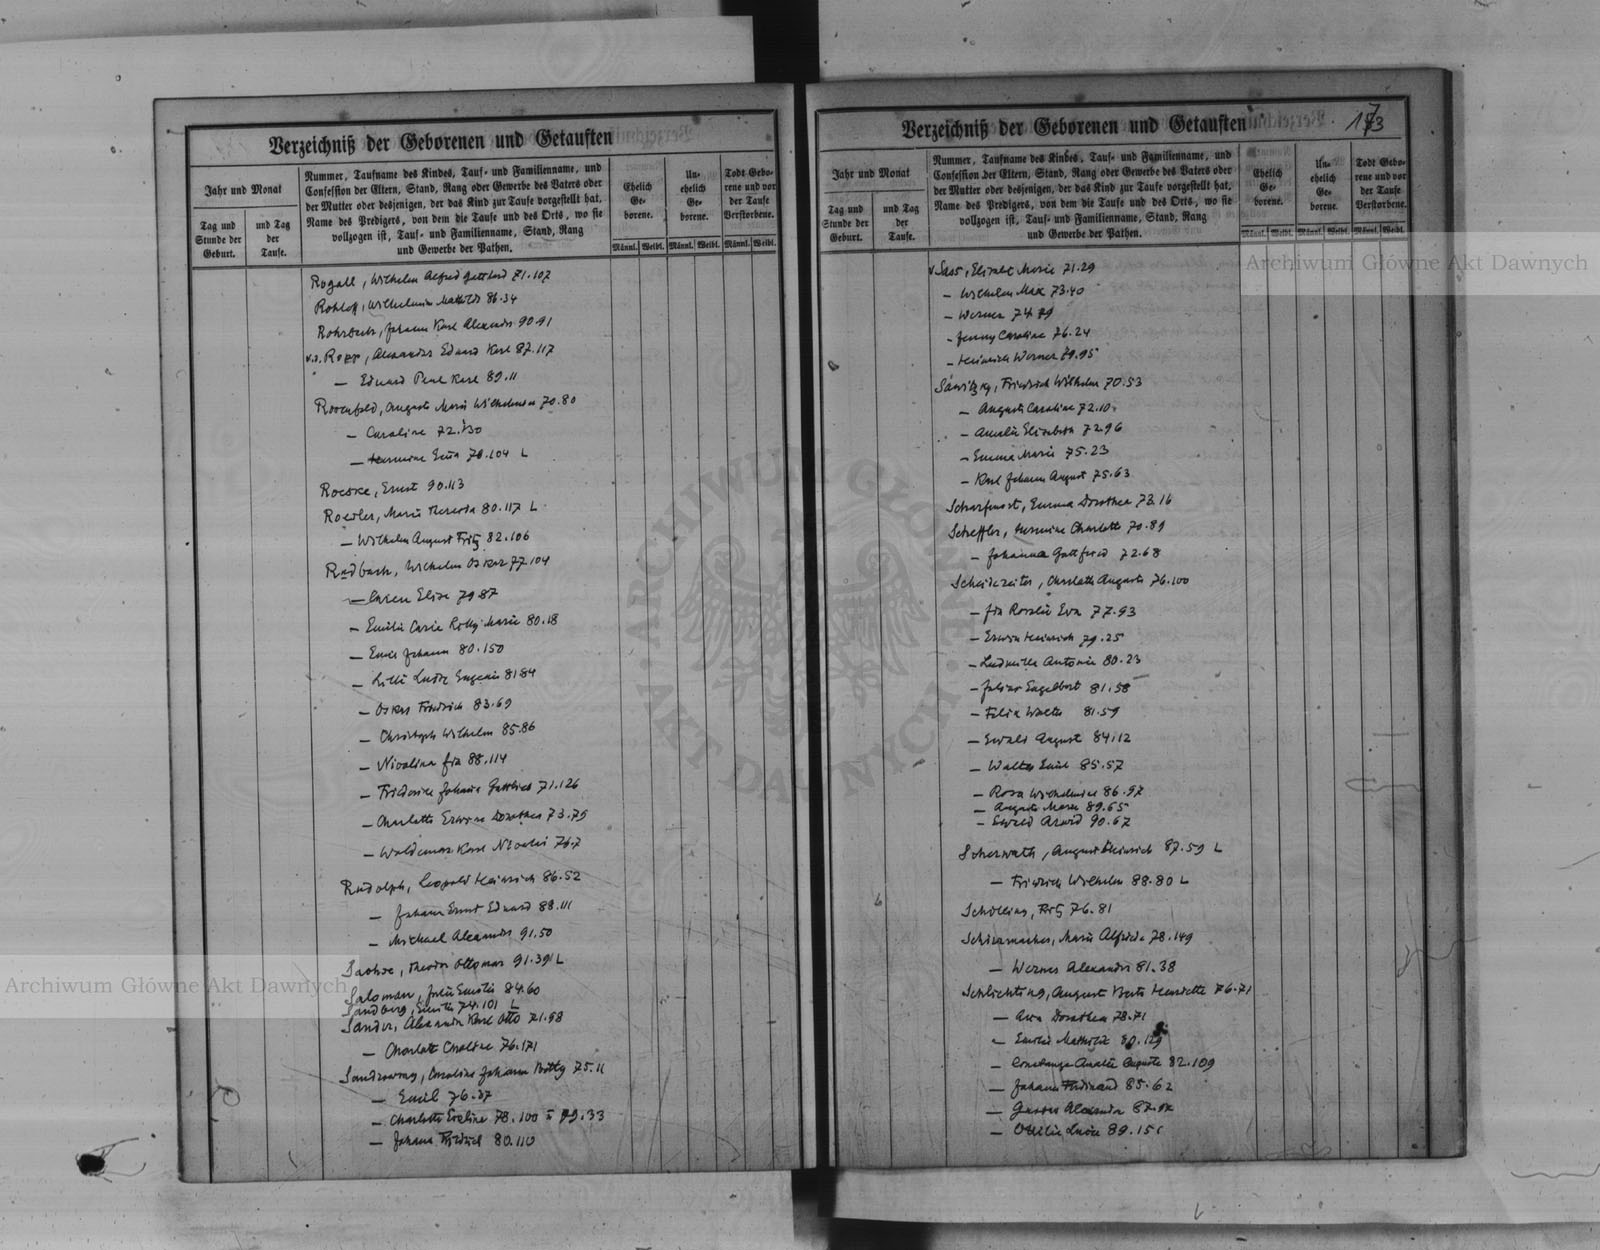 Verzeichniß der Geborenen und Getauften
Jahr und Monat
Tag und Stunde der Geburt.
und Tag der Taufe.
Nummer, Taufname des Kindes, Tauf- und Familienname, und
Confession der Eltern, Stand, Rang oder Gewerbe des Vaters oder
der Mutter oder desjenigen, der das Kind zur Taufe vorgestellt hat,
Name des Predigers, von dem die Taufe und des Orts, wo sie
vollzogen ist, Tauf- und Familienname, Stand, Rang
und Gewerbe der Pathen.
Ehelich Ge- borene.
Un- ehelich Ge- borene.
Todt Gebo- rene und vor der Taufe Verstorbene.
Männl. Weibl. Männl. Weibl. Männl. Weibl.
Rogall, Wilhelm Alfred Gottlieb 71.107
Rohloff, Wilhelmine Mathilde 86.34
Johann Karl Alexander 90.91
v.d. Ropp, Alexander Eduard Karl 87.117
— Eduard Paul Karl 89.11
Rosenfeld, Auguste Marie Wilhelmine 70.80
— Caroline 72.130
— Hermine 104 L
Roeske, Ernst 90.113
Roesler, Marie Theresia 80.117 L
— Wilhelm August Fritz 82.106
Rudbach, Wilhelm Oskar 77.104
— Elise 79.87
— Emilie Marie 80.18
— Emil Johann 80.150
— Lilli Eugenie 81.84
— Oskar Friedrich 83.69
— Christoph Wilhelm 85.86
— Nicolina 88.114
— Friederike Johanna 71.126
— Charlotte Dorothea 73.79
— Waldemar Karl Nicolai 76.7
Rudolph, Leopold Heinrich 86.52
— Johann Ernst Eduard 88.111
— Michael Alexander 91.50
Theodor Ottomar 91.39 L
Saloman, Julie Emilie 84.60
Sandberg, Emilie 74.101 L
Sander, Alexander Karl Otto 71.98
— Charlotte 76.171
Caroline Johanna 75.11
— Emil 76.37
— Charlotte Eveline 78.100 79.33
— Johann Friedrich 80.110
Verzeichniß der Geborenen und Getauften
173
Jahr und Monat
Tag und Stunde der Geburt.
und Tag der Taufe.
Nummer, Taufname des Kindes, Tauf- und Familienname, und
Confession der Eltern, Stand, Rang oder Gewerbe des Vaters oder
der Mutter oder desjenigen, der das Kind zur Taufe vorgestellt hat,
Name des Predigers, von dem die Taufe und des Orts, wo sie
vollzogen ist, Tauf- und Familienname, Stand, Rang
und Gewerbe der Pathen.
Ehelich Ge- borene.
Un- ehelich Ge- borene.
Todt Gebo- rene und vor der Taufe Verstorbene.
Männl. Weibl. Männl. Weibl. Männl. Weibl.
v. Sass, Elisabet Marie 71.29
— Wilhelm Max 73.40
— Werner 74.
— Jenny Caroline 76.24
— Heinrich Werner 79.95
Friedrich Wilhelm 70.53
— Auguste Caroline 72.10
— Amalie Elisabeth 72.96
— Emma Marie 75.23
— Karl Johann August 75.63
Emma Dorothea 73.16
Scheffler, Hermine Charlotte 70.89
— Johanna Gottfried 72.68
Charlotte Auguste 76.100
— Rosalie Eva 77.93
— Erwin Heinrich 79.25
— Ludmilla Antonie 80.23
— Julius Engelbert 81.58
— Felix Walter 81.59
— Ewald August 84.12
— Walter Emil 85.57
— Rosa Wilhelmine 86.97
— Auguste Marie 89.65
— Ewald Arvid 90.67
Scherwath, August Heinrich 87.59 L
— Friedrich Wilhelm 88.80 L
Fritz 76.81
Schirrmacher, Marie 78.149
— Werner Alexander 81.38
Schlichting, August Henriette 76.71
— Dorothea 78.71
— Emilie Mathilde 80.129
— Constanze Amalie Auguste 82.109
— Johann Ferdinand 85.62
— Gustav Alexander 87.
— Ottilie Lucie 89.15
Archiwum Główne Akt Dawnych
Archiwum Główne Akt Dawnych
ARCHIWUM GŁÓWNE AKT DAWNYCH